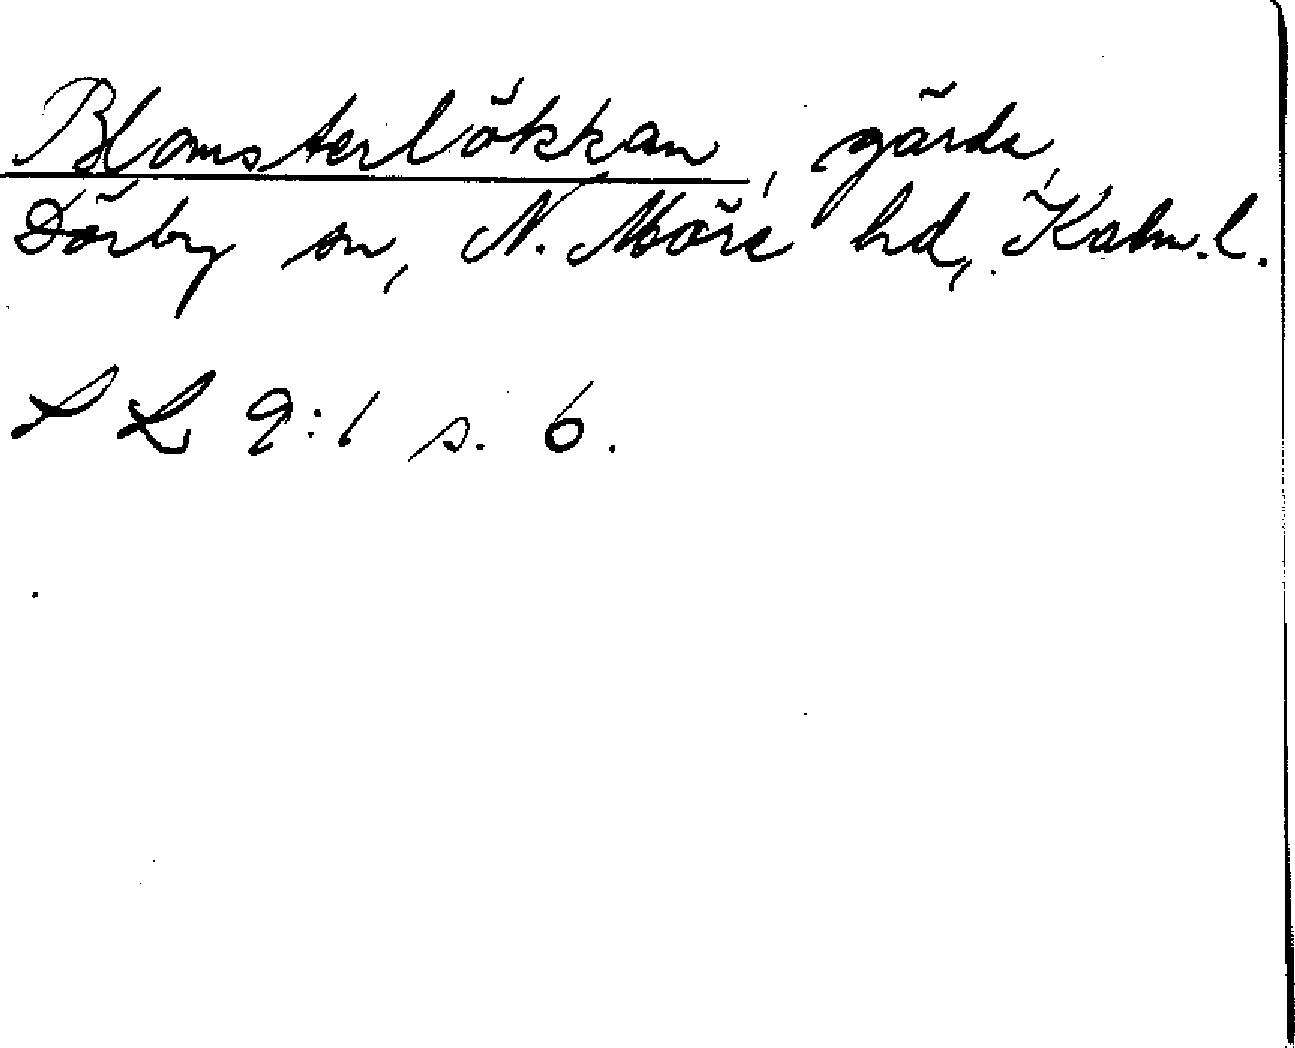 Blomsterlökkan, gärde,
Dörby sn, N. Möre hd, Kalm. l.
SL 9:1 s. 6.